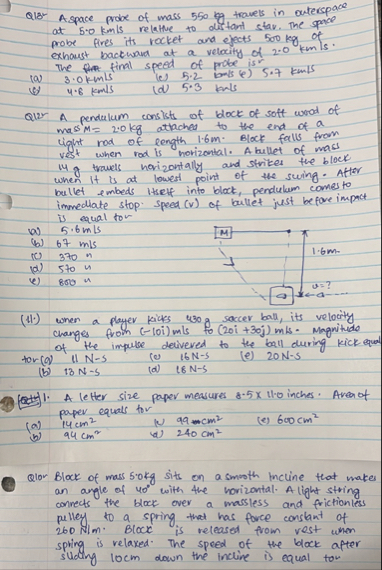 Q13:- A space probe of mass 550 kg travels in outerspace
at 5.0 km/s relative to distant star. The space
probe fires its rocket and ejects 500 kg of
exhaust backward at a velocity of 2.0 km/s.
The final speed of probe is:-
(a) 3.0 km/s (c) 5.2 km/s (e) 5.7 km/s
(b) 4.8 km/s (d) 5.3 km/s
Q12:- A pendulum consists of block of soft wood of
mass M = 2.0 kg attaches to the end of a
light rod of length 1.6m. Block falls from
rest when rod is horizontal. A bullet of mass
14 g travels horizontally and strikes the block
when it is at lowest point of the swing. After
bullet embeds itself into block, pendulum comes to
immediate stop. Speed (v) of bullet just before impact
is equal to:-
(a) 5.6 m/s
(b) 67 m/s
(c) 370 "
(d) 570 "
(e) 800 "
M
1.6m
v=?
(11.) when a player kicks 430g soccer ball, its velocity
changes from (-10i) m/s to (20i +30j) m/s. Magnitude
of the impulse delivered to the ball during kick equal
to:- (a) 11 N-s (c) 16 N-s (e) 20 N-s
(b) 13 N-s (d) 18 N-s
1. A letter size paper measures 8.5 x 11.0 inches. Area of
paper equals to:-
(a) 14 cm² (c) 99 cm² (e) 600 cm²
(b) 94 cm² (d) 240 cm²
Q10:- Block of mass 5.0 kg sits on a smooth incline that makes
an angle of 40° with the horizontal. A light string
connects the block over a massless and frictionless
pulley to a spring that has force constant of
260 N/m. Block is released from rest when
spring is relaxed. The speed of the block after
sliding 10cm down the incline is equal to:-